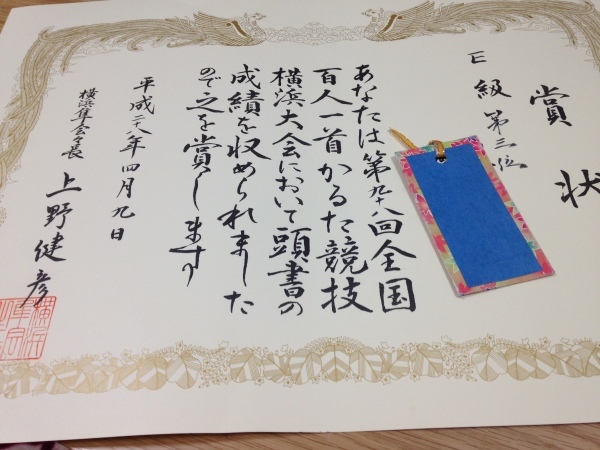 賞状
E級 第三位
あなたは第九十八回全国
百人一首かるた競技
横浜大会において頭書の
成績を収められました
ので之を賞します
平成二十八年四月九日
横浜隼会々長 上野健彦
横浜
隼会